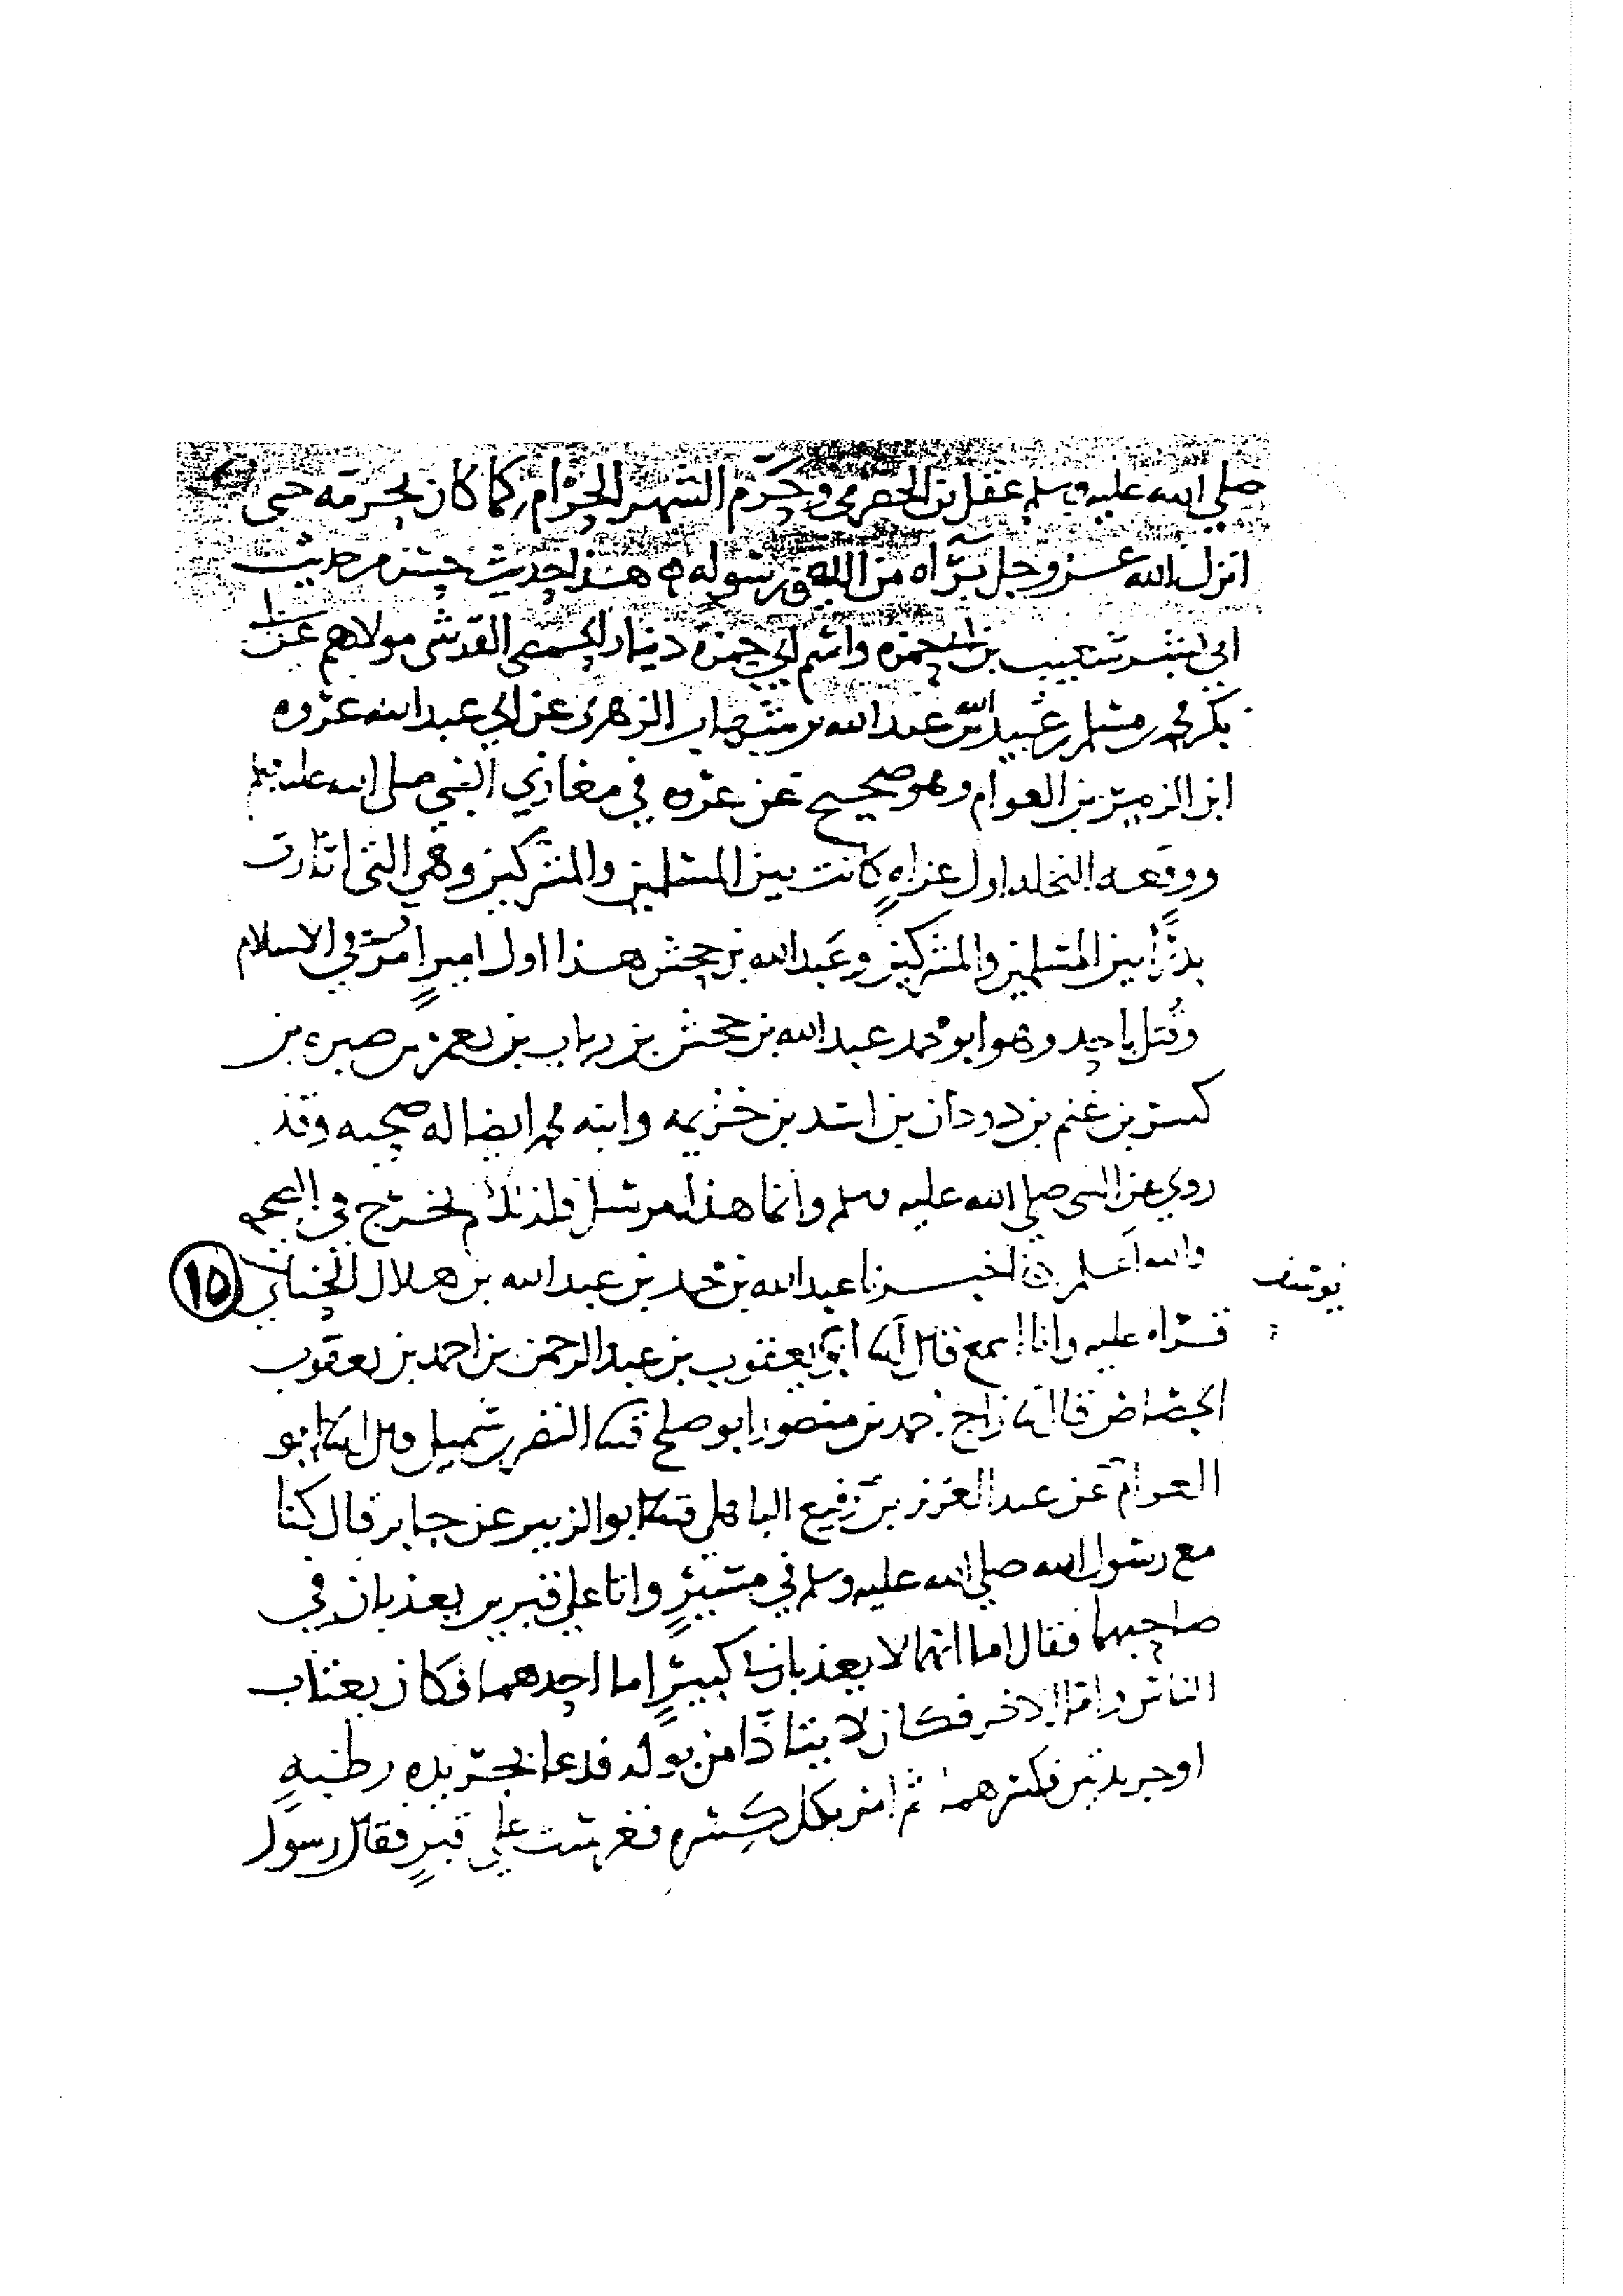 صلى الله عليه وسلم عقل بن الحضرمي وحرم الشهر الحرام كما كان يحرمه حتى
انزل الله عز وجل براه من الله ورسوله ه هذا حديث حسن من حديث
ابي بشر شعيب بن ابي حمزه واسم ابي حمزه دينار القرشي مولاهم عن ابي
بكر محمد بن مسلم بن عبيد الله بن عبد الله بن شهاب الزهري عن ابي عبد الله عروه
ابن الزبير بن العوام وهو صحيح عن عروه في مغازي النبي صلى الله عليه وسلم
ووقعه النخله اول غزاه كانت بين المسلمين والمشركين وهي التي اثارت
بدرا بين المسلمين والمشركين وعبد الله بن جحش هذا اول امير امر في الاسلام
وقتل باحد وهو ابو محمد عبد الله بن جحش بن رياب بن يعمر بن صبره بن
كبير بن غنم بن دودان بن اسد بن خزيمه وابنه محمد ايضا له صحبه وقد
روي عن النبي صلى الله عليه وسلم وانما هذا مرسل فلذلك لم يخرج في الصحيح
والله اعلم ه اخبرنا عبد الله بن محمد بن عبد الله بن هلال الحنائي
١٥
يوسف
قراه عليه وانا اسمع قال ابنا ابو يعقوب بن عبد الرحمن بن احمد بن يعقوب
الجصاص قال ثنا زاج احمد بن منصور ابو صلح قثنا النضر بن شميل قال ابنا ابو
العوام عن عبد العزيز بن رفيع الباهلي قثنا ابو الزبير عن جابر قال كنا
مع رسول الله صلى الله عليه وسلم في مسير وانا على قبرين يعذبان في
صاحبهما فقال اما انهما لا يعذبان في كبير اما احدهما فكان يغتاب
الناس واما الاخر فكان لا يتاذا من بوله فدعا بجريده رطبه
او جريدتين فكسرهما ثم امر بكل كسره فغرست على قبر فقال رسول